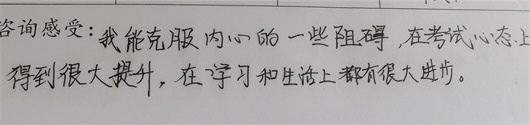 咨询感受：我能克服内心的一些阻碍，在考试心态上
得到很大提升，在学习和生活上都有很大进步。